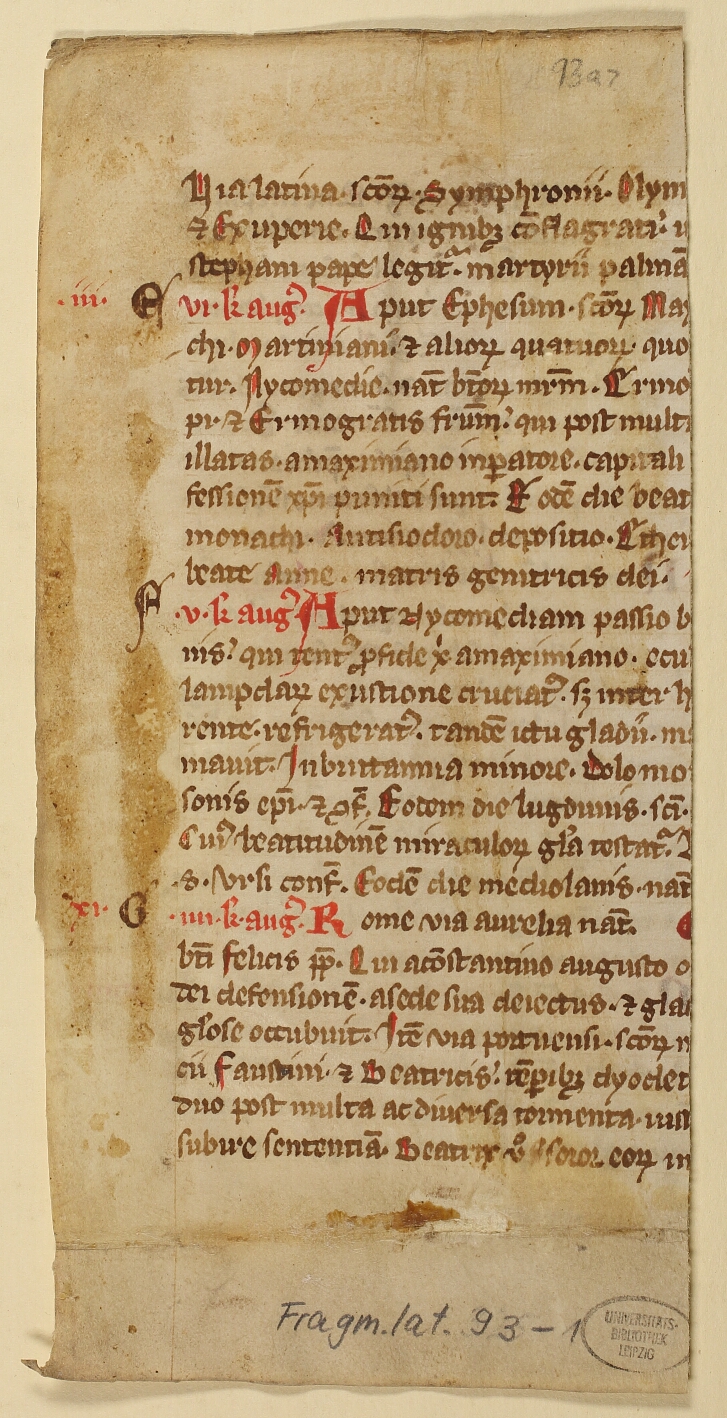 93 a 7
Via latina. scōꝝ. Symphronii. Olym
⁊ Exuperie. Qui ignibꝫ cōflagrati.
stephani pape legitᷓ. martyrii palmā
.iii. E vi. k̄ augꝰ. Aput Ephesum. scōꝝ Max
chi. Martiniani. ⁊ alioꝝ quatuoꝝ. quo
tur. Nycomedie. nat̄ btōꝝ mrm̄. Ermo
pi. ⁊ Ermogratis frūm. qui post multi
illatas. amaximiano inꝑatore. capitali
fessionē xp̄i puniti sunt. Eodē die beat
monachi. Autisiodoro. depositio.
beate Anne. matris genitricis dei.
F .v. k̄ augꝰ. Aput Nycomediam passio b
nis. qui tentꝰ ꝓ fide xͥ amaximiano. ecu
lampdaꝝ exustione cruciatꝰ. sꝫ inter h
rente. refrigeratꝰ. tandē ictu gladii. m
mauit. In brittannia minore. Dolomo
sonis ep̄i. ⁊ ɔf̄. Eodem die lugdunis. sci.
Cuiꝰ beatitudinē miraculoꝝ gl̄a testatᷓ.
.s. Vrsi conf̄. Eodē die mediolanis. nat̄
xi. G .iiii. k̄. augꝰ. Rome via aurelia nat̄.
bt̄i felicis pp̄. Qui acōstantino augusto o
dei defensionē. asede sua deiectus. ⁊ gla
gl̄ose occubuit. Itē via portuensi. scōꝝ
cii Faustini. ⁊ Beatricis. tēꝑibꝫ dyoclet
duo post multa ac diuersa tormenta. ius
subire sententiā. Beatrix v̊ soror eoꝝ in
Fragm. lat. 93 – 1
UNIVERSITÄTS-
BIBLIOTHEK
LEIPZIG